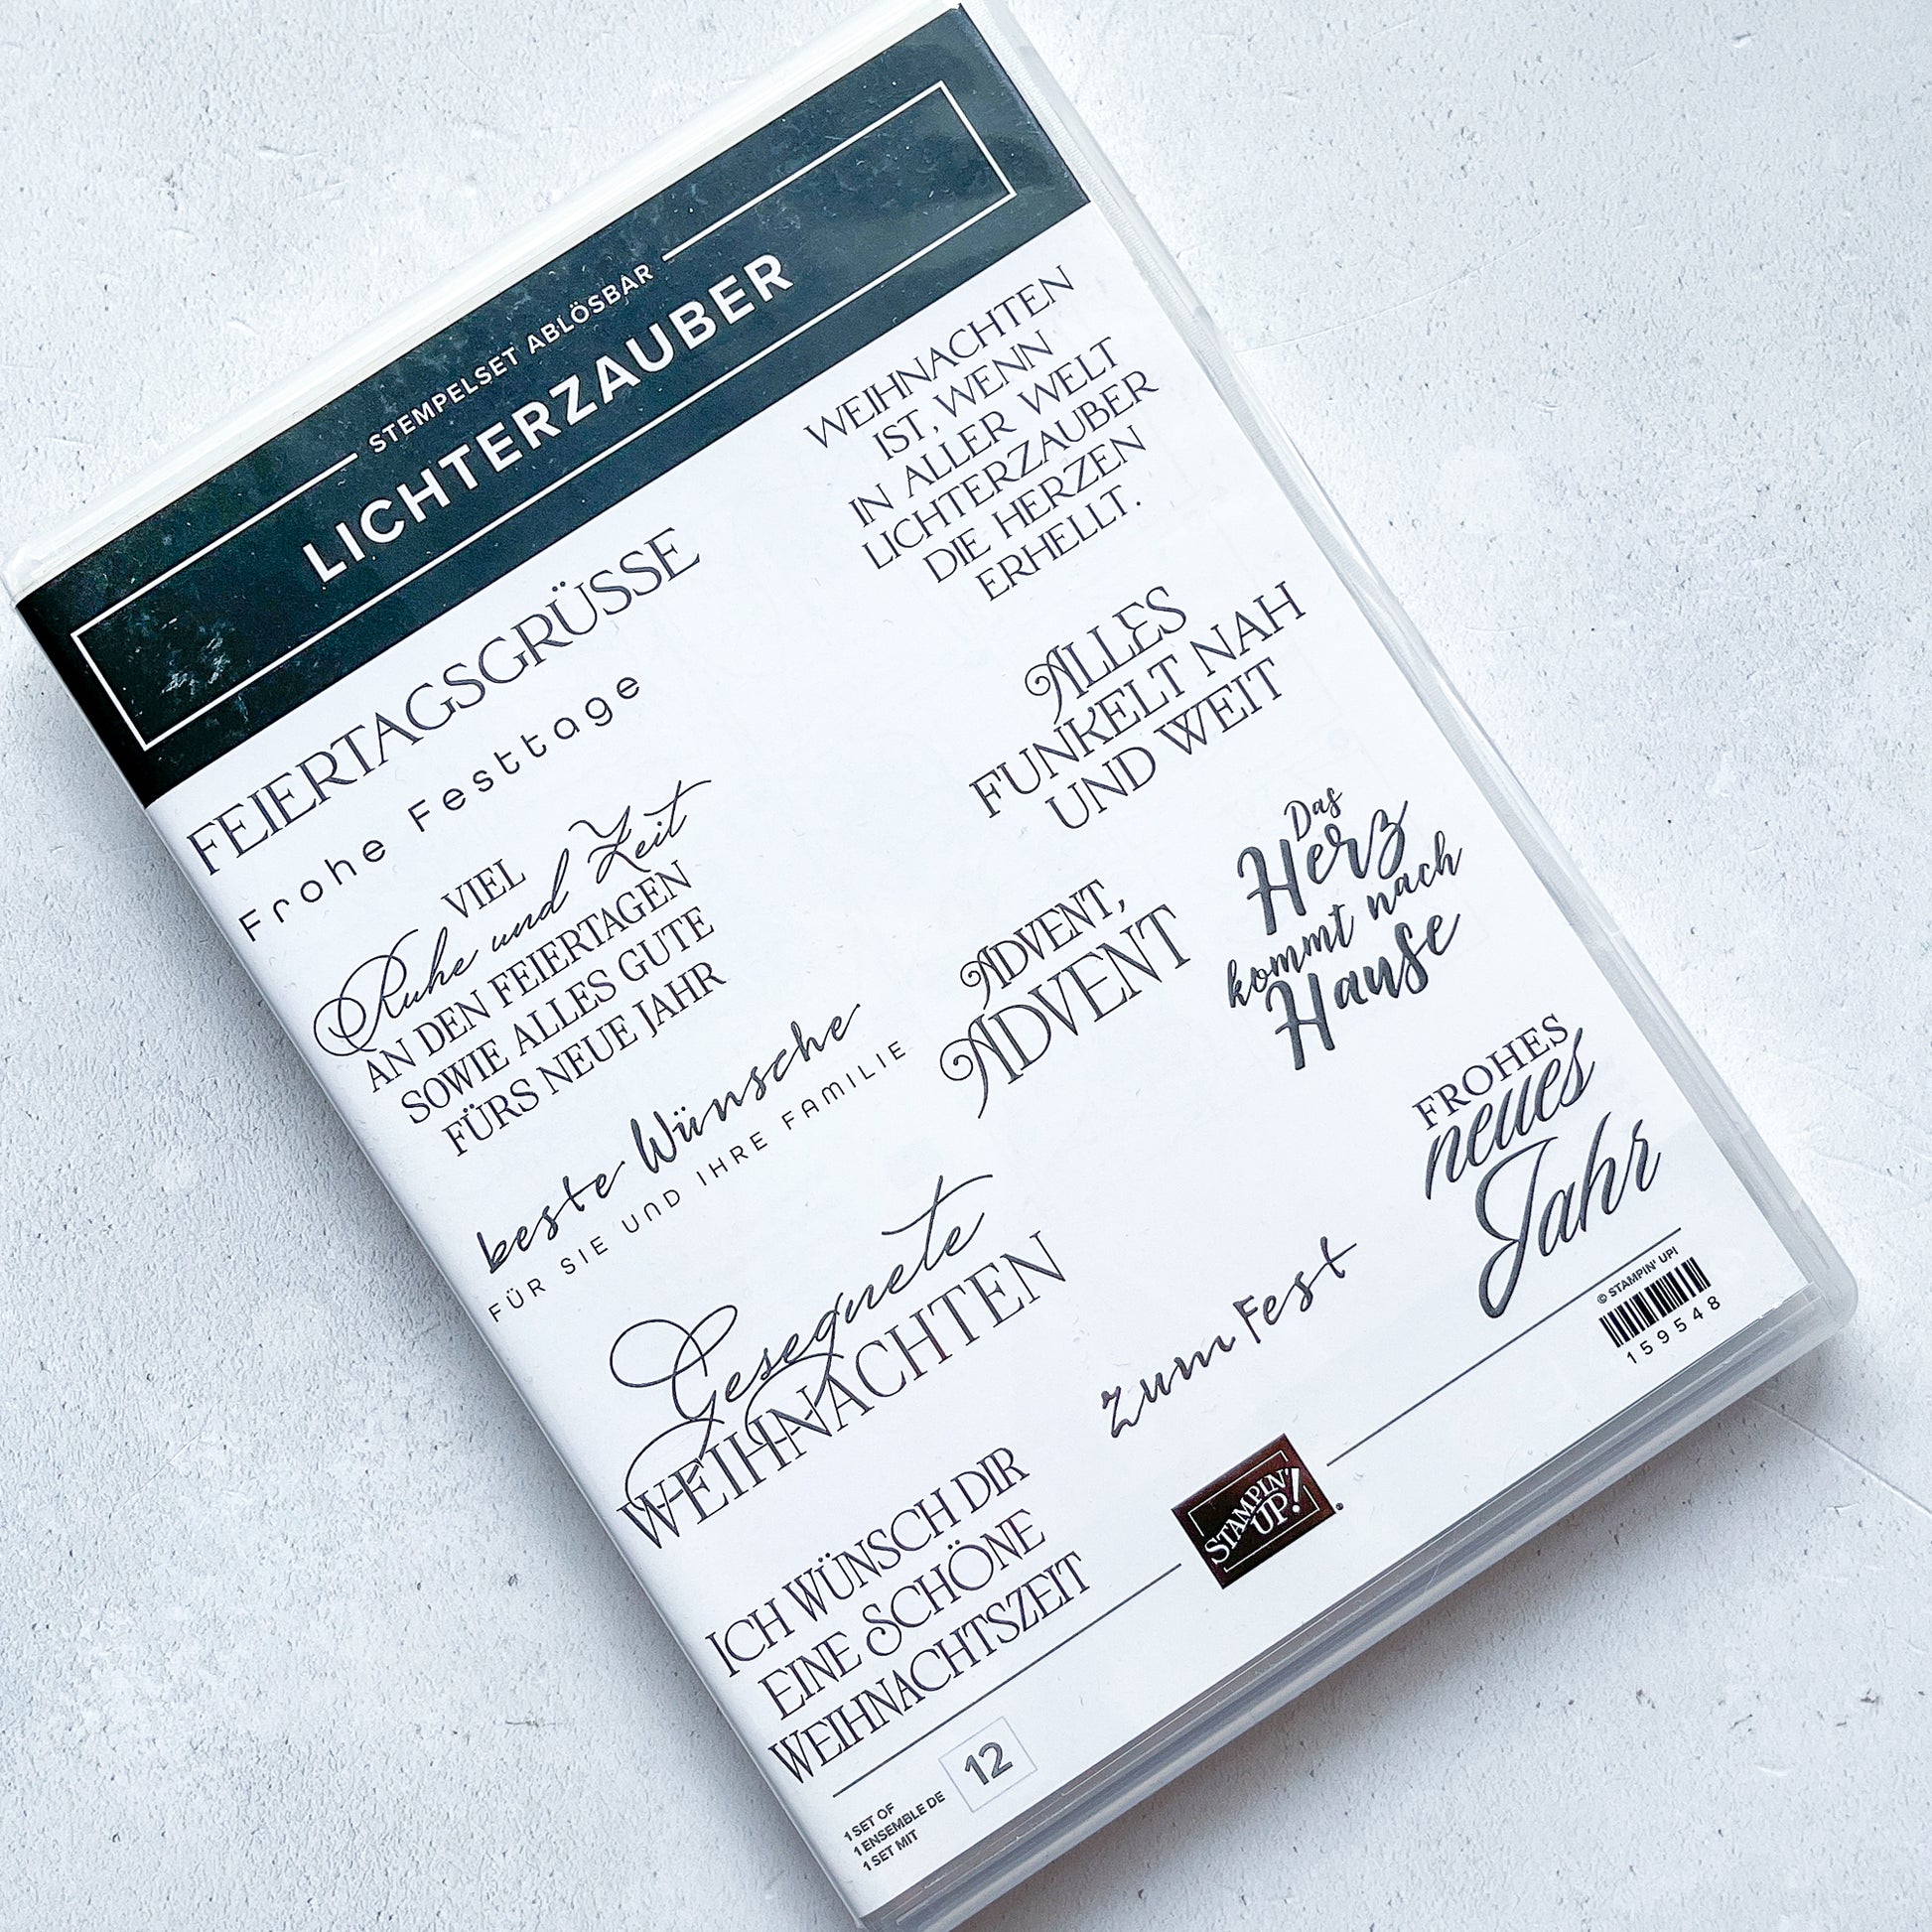 STEMPELSET ABLÖSBAR
LICHTERZAUBER
FEIERTAGSGRÜSSE
Frohe Festtage
VIEL
Ruhe und Zeit
AN DEN FEIERTAGEN
SOWIE ALLES GUTE
FÜRS NEUE JAHR
beste Wünsche
FÜR SIE UND IHRE FAMILIE
Gesegnete
WEIHNACHTEN
ICH WÜNSCH DIR
EINE SCHÖNE
WEIHNACHTSZEIT
WEIHNACHTEN
IST, WENN
IN ALLER WELT
LICHTERZAUBER
DIE HERZEN
ERHELLT.
ALLES
FUNKELT NAH
UND WEIT
ADVENT,
ADVENT
Das
Herz
kommt nach
Hause
FROHES
neues
Jahr
zum Fest
1 SET OF
1 ENSEMBLE DE
1 SET MIT
12
STAMPIN'
UP!®
© STAMPIN' UP!
159548